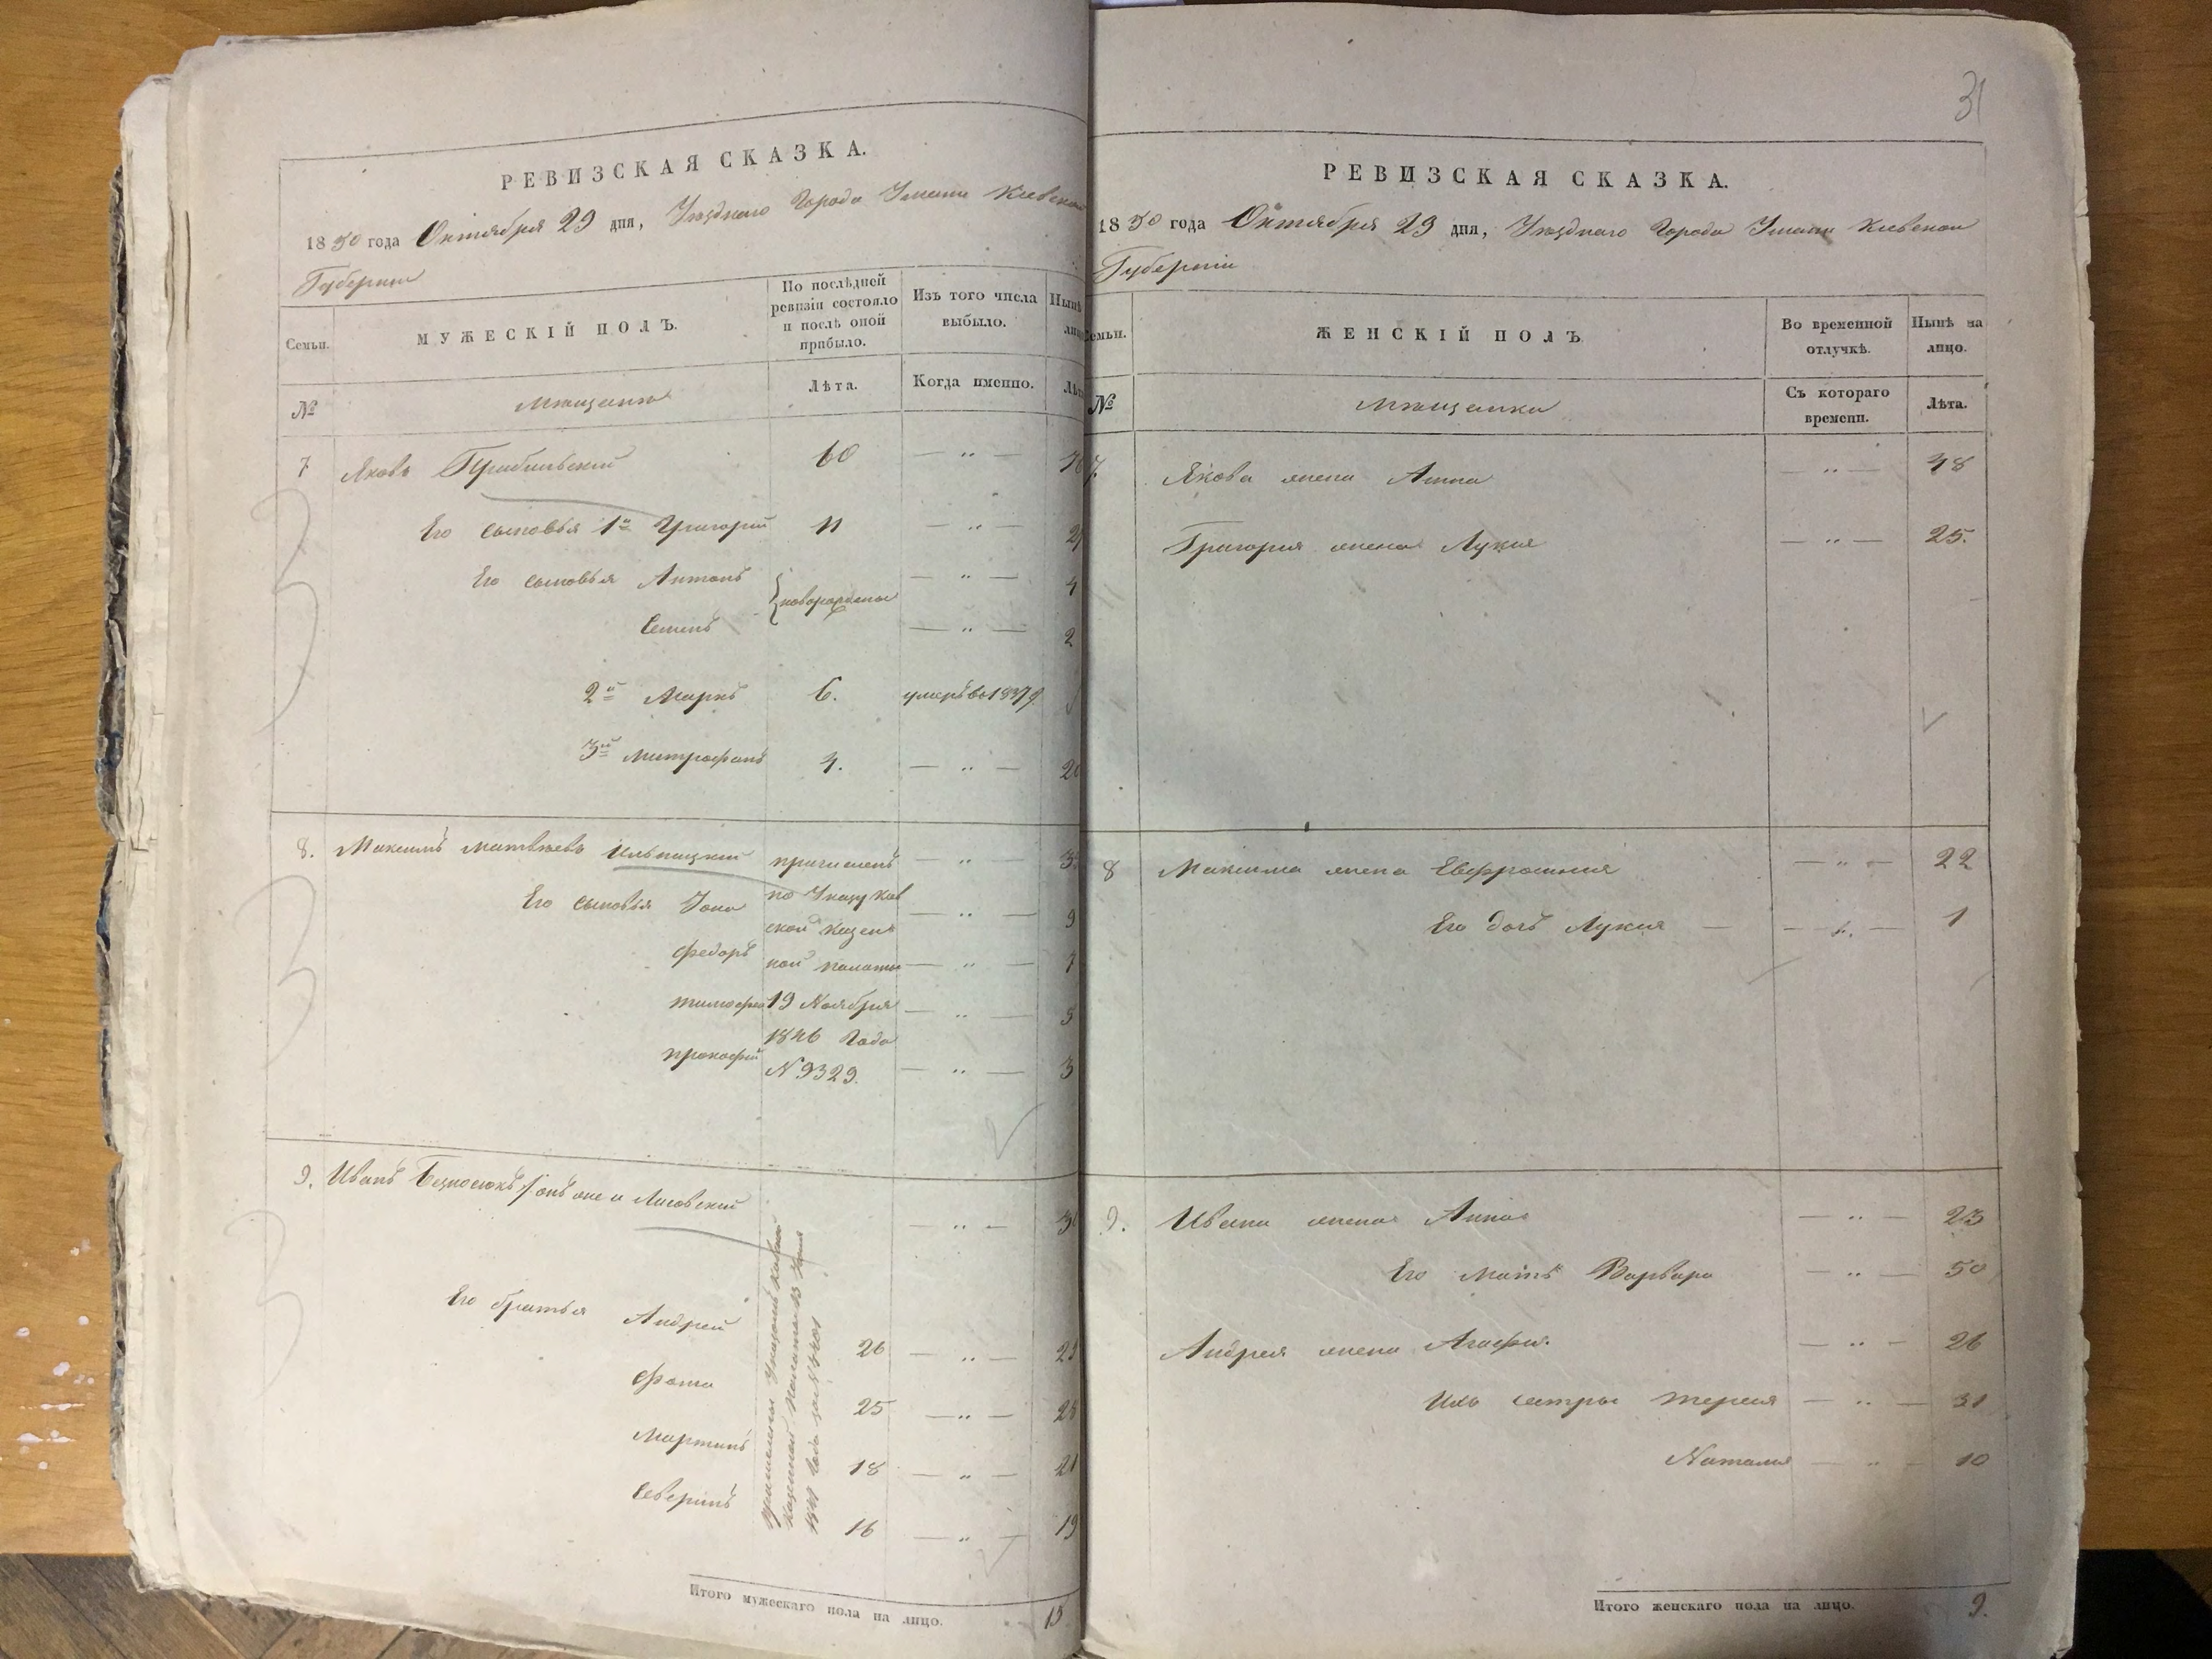 РЕВИЗСКАЯ СКАЗКА.
1850 года Октября 29 дня, Уѣзднаго Города Умани Киевской
Губернии
Семьи.
МУЖЕСКІЙ ПОЛЪ.
По послѣдней ревизіи состояло и послѣ оной прибыло.
Изъ того числа выбыло.
Нынѣ
№
Мѣщане
Лѣта.
Когда именно.
7 Яковъ 60 — " —
Его сыновья 1й Григорий 11 — " —
Его сыновья Антонъ — " — 4
новорожденые
Семенъ — " — 2
2й Марко 6. умеръ в 1837
3й Митрофанъ 4. — " — 20
8. Максимъ Матвѣевъ Ильницкий причисленъ — " —
Его сыновья Іона по Указу Киев — " — 9
ской казен
Федоръ ной палаты — " — 7
Тимофей 19 Ноября — " — 5
1846 Года
Прокофий № 9329. — " — 3
9. Иванъ онъ же и Лисовский — " —
Его братья Андрей 26 — " —
Фома 25 — " — 28
Мартинъ 18 — " — 21
Северинъ 16 — " — 19
причислены Указомъ Киевской
Казенной Палаты 13 Июня
Итого мужескаго пола на лицо. 15
31
РЕВИЗСКАЯ СКАЗКА.
1850 года Октября 29 дня, Уѣзднаго Города Умани Киевской
Губерніи
Семьи.
ЖЕНСКІЙ ПОЛЪ
Во временной отлучкѣ.
Нынѣ на лицо.
№
Мѣщанки
Съ котораго времени.
Лѣта.
7. Якова жена Анна — " — 48
Григория жена Лукия — " — 25.
8 Максима жена Евфросиния — " — 22
Его дочь Лукия — — " — 1
9. Ивана жена Анна — " — 23
Его мать Варвара — " — 50
Андрея жена Агафия. — " — 26
Ихъ сестры Тересия — " — 31
Наталия — " — 10
Итого женскаго пола на лицо. 9.